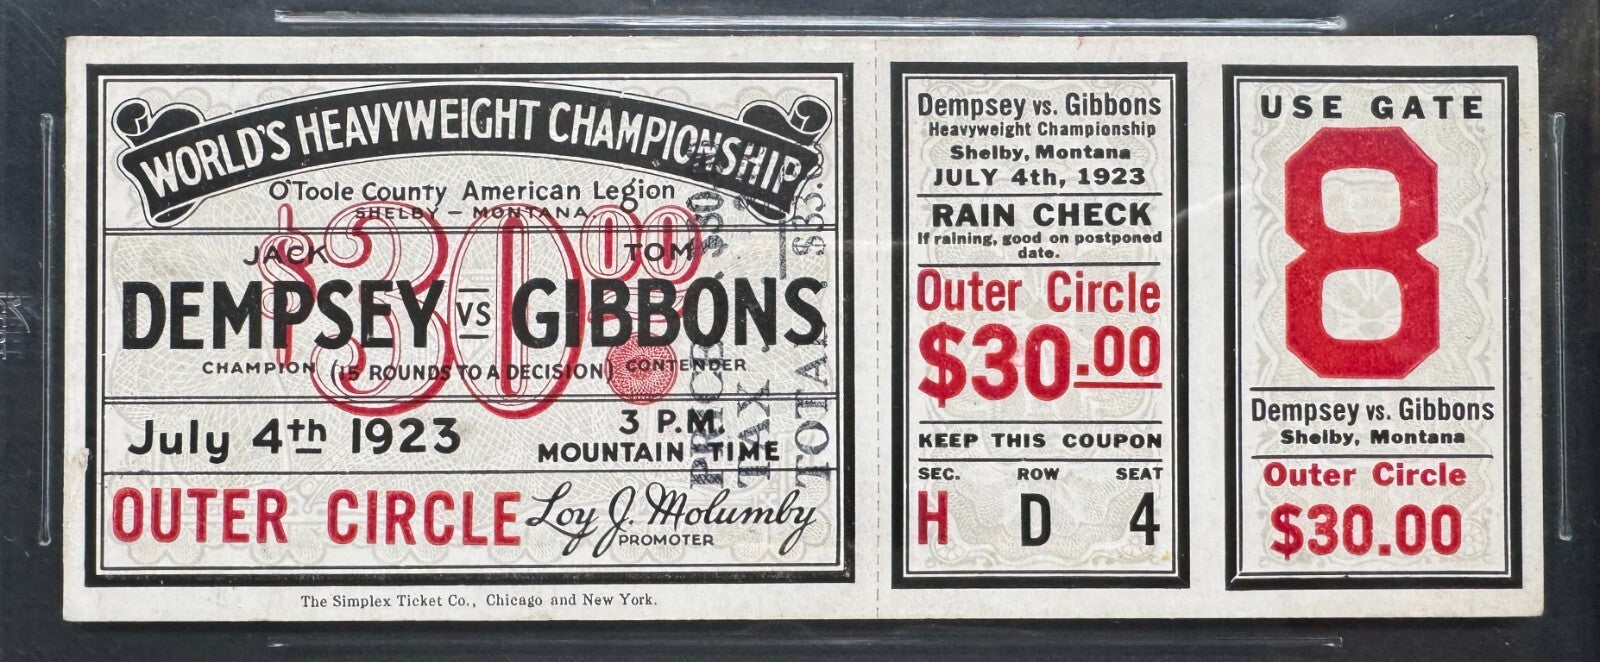 WORLD'S HEAVYWEIGHT CHAMPIONSHIP
O'Toole County American Legion
SHELBY - MONTANA
$30.00
JACK TOM
DEMPSEY VS GIBBONS
CHAMPION (15 ROUNDS TO A DECISION) CONTENDER
July 4th 1923
3 P.M.
MOUNTAIN TIME
OUTER CIRCLE
Loy J. Molumby
PROMOTER
PRICE
TAX
TOTAL
The Simplex Ticket Co., Chicago and New York.
Dempsey vs. Gibbons
Heavyweight Championship
Shelby, Montana
JULY 4th, 1923
RAIN CHECK
If raining, good on postponed
date.
Outer Circle
$30.00
KEEP THIS COUPON
SEC. ROW SEAT
H D 4
USE GATE
8
Dempsey vs. Gibbons
Shelby, Montana
Outer Circle
$30.00